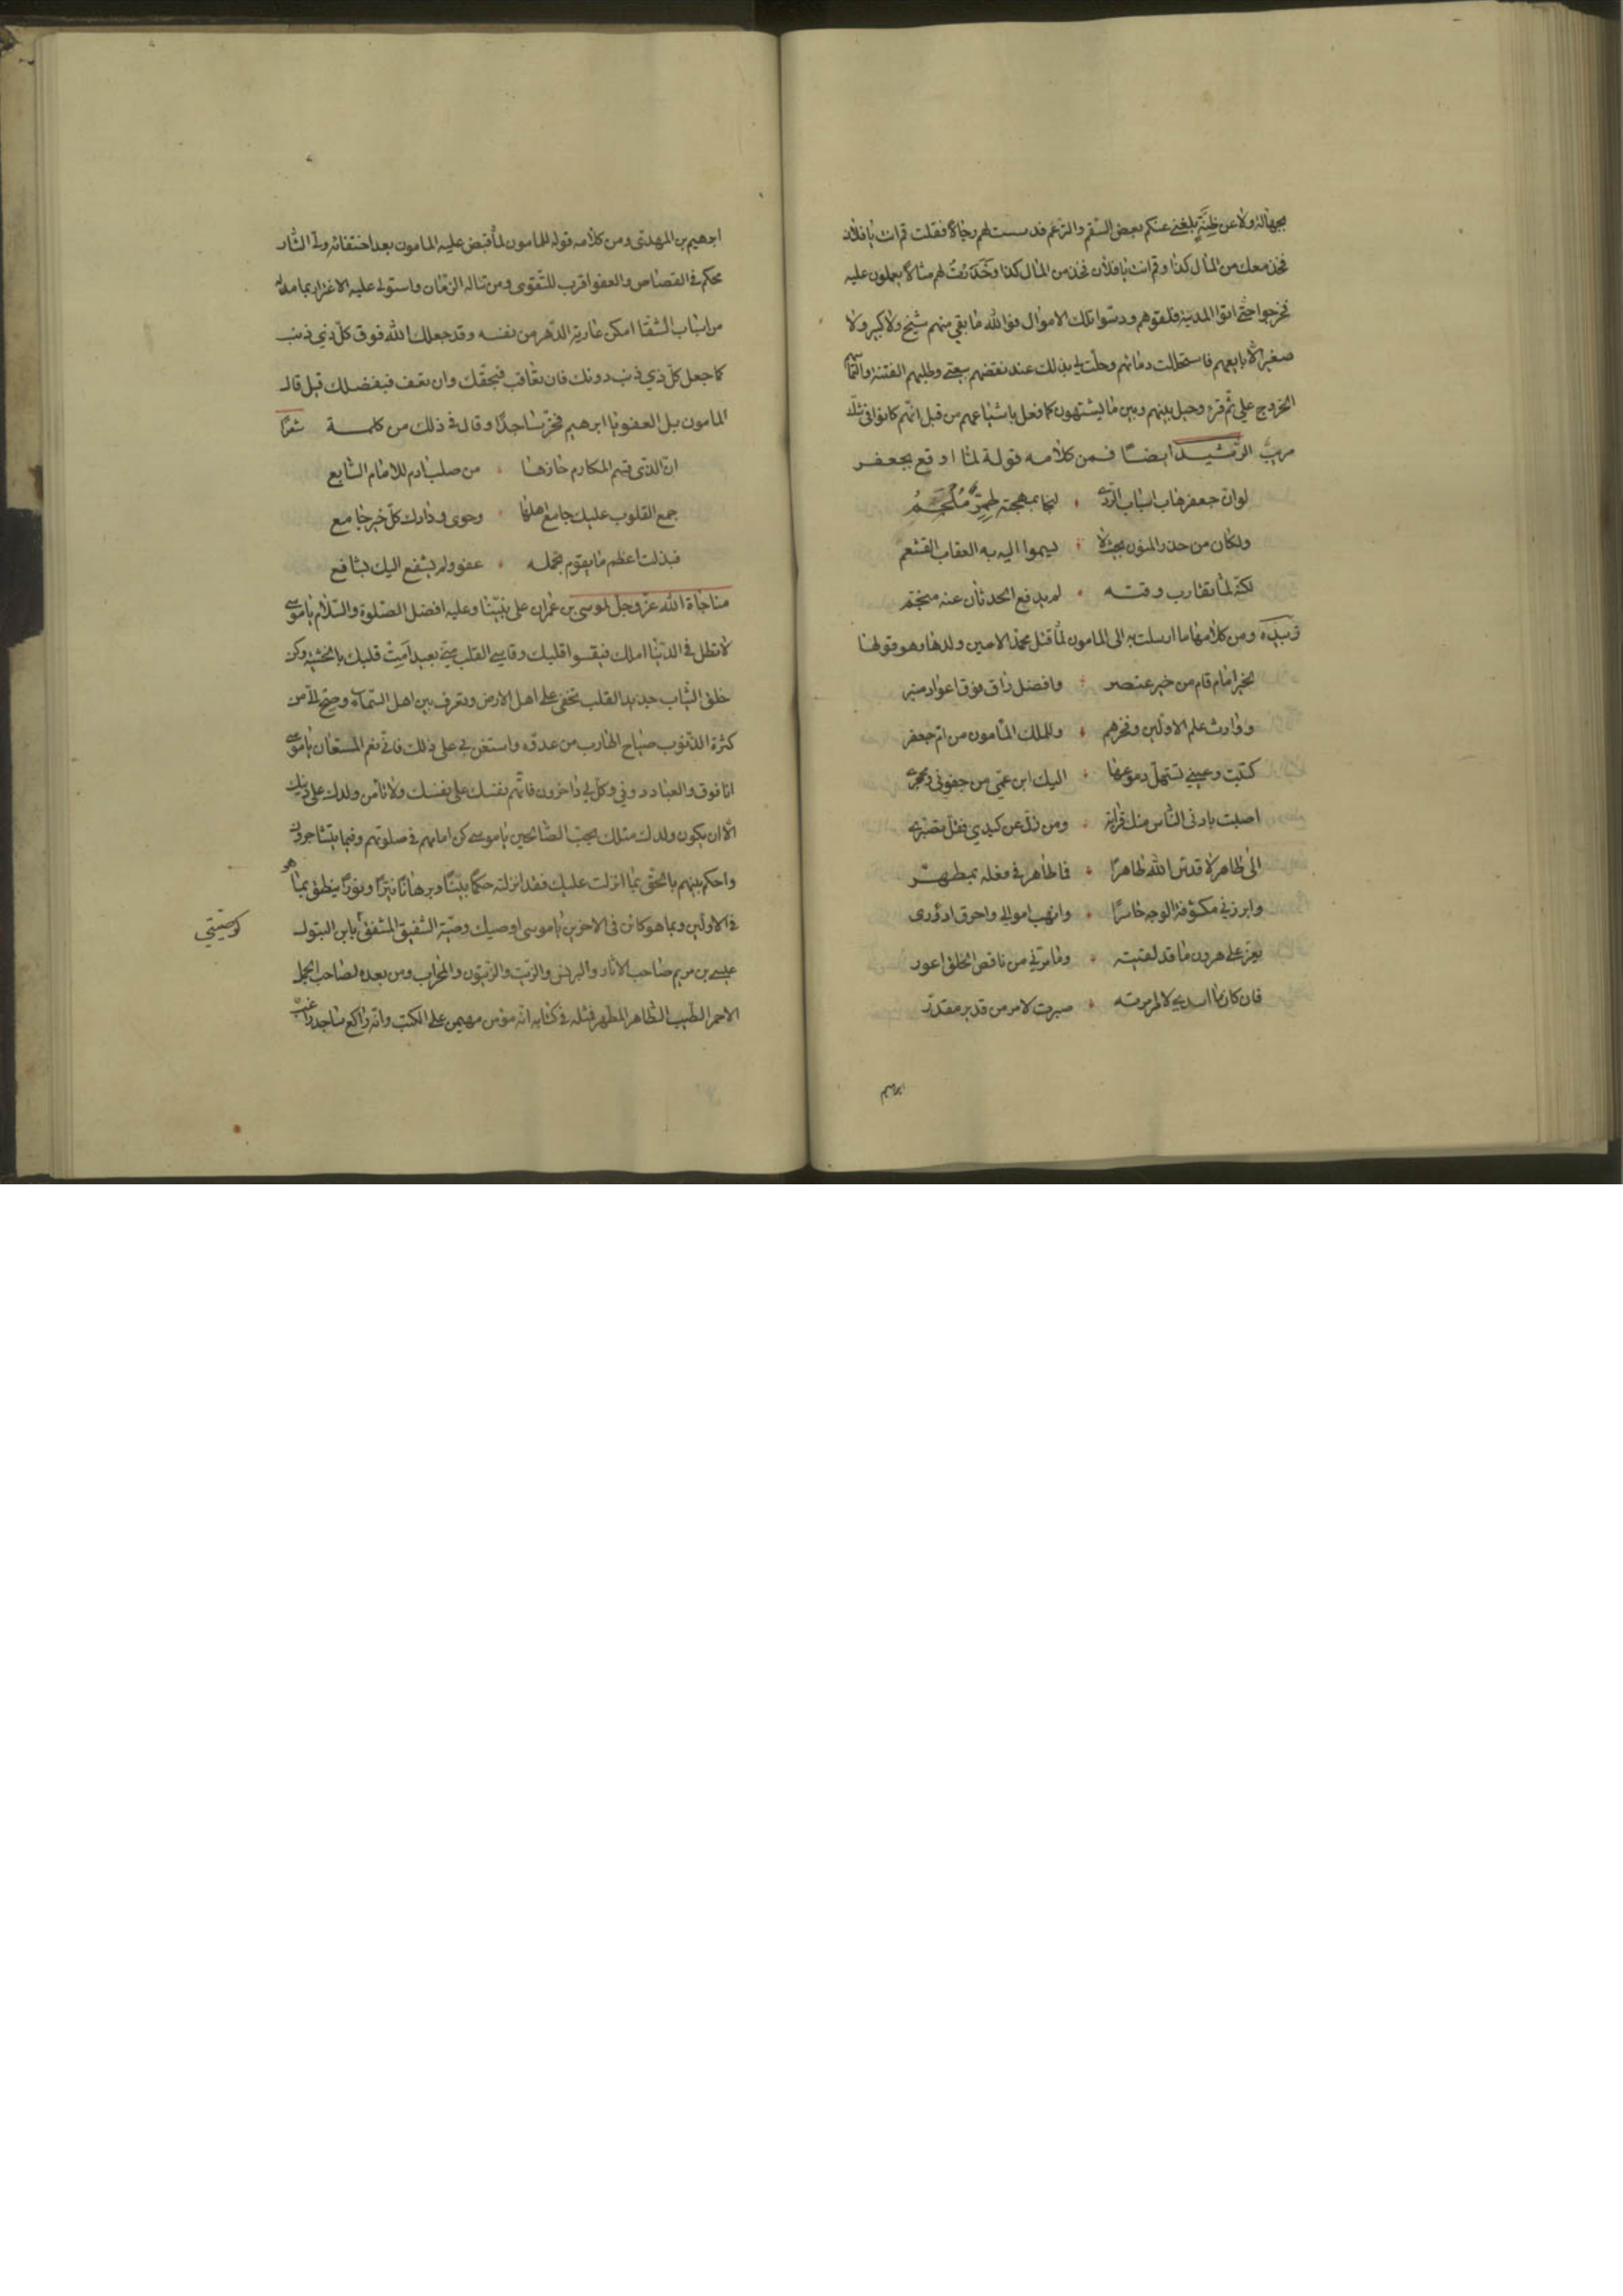 بجهالة ولا عن ظنة بلغني عنكم بعض السقم والزعم قد دسست لهم رجالا فقلت قم انت يا فلان
فخذ معك من المال كذا وقم انت يا فلان فخذ من المال كذا وحددت لهم مثالا يعملون عليه
فخرجوا حتى اتوا المدينة فلقوهم ودسوا تلك الاموال فوالله ما بقي منهم شيخ ولا كبير ولا
صغير الا بايعهم فاستحللت دمائهم وحلت لي بذلك عند نقضهم بيعتي وطلبهم الفتنة والتماسهم
الخروج علي ثم قرء وحيل بينهم وبين ما يشتهون كما فعل باشياعهم من قبل انهم كانوا في شك
مريب الرشيد ايضا فمن كلامه قولة لما اوقع بجعفر
لو ان جعفر هاب اسباب الردى لنجا بمهجته طمر ملجم
ولكان من حذر المنون بحيث لا يسموا اليه به العقاب القشعم
لكنه لما تقارب وقته لم يدفع الحدثان عنه منجم
زبيده ومن كلامها ما ارسلت به الى المامون لما قتل محمد الامين ولدها وهو قولها
لخير امام قام من خير عنصر وافضل راق فوق اعواد منبر
ووارث علم الاولين وفخرهم وللملك المأمون من ام جعفر
كتبت وعيني تستهل دموعها اليك ابن عمي من جفوني ومحجري
اصبت بادنى الناس منك قرابة ومن زل عن كبدي فقل تصبري
اتى طاهر لا قدس الله طاهرا فما طاهر في فعله بمطهر
وابرزني مكشوفة الوجه حاسرا وانهب اموالي واحرق ادؤري
يعز على هرون ما قد لقيته وما مرني من ناقص الخلق اعور
فان كان ما اسدى لامر امرته صبرت لامر من قدير مقدر
ابراهيم
ابرهيم بن المهدي ومن كلامه قوله للمامون لما قبض عليه المامون بعد اختفائه ولي الثار
محكم في القصاص والعفو اقرب للتقوى ومن تناله الزمان واستولى عليه الاغترار بما مد له
من اسباب الشقا امكن عادية الدهر من نفسه وقد جعلك الله فوق كل ذي ذنب
كما جعل كل ذي ذنب دونك فان تعاقب فبحقك وان تعف فبفضلك قيل قال
المامون بل العفو يا ابرهيم فخر ساجدا وقال في ذلك من كلمة شعرا
ان الذي قسم المكارم حازها من صلب ادم للامام السابع
جمع القلوب عليك جامع اهلها وحوى ودادك كل خير جامع
فبذلت اعظم ما يقوم بحمله عفو ولم يشفع اليك بشافع
مناجاة الله عز وجل لموسى بن عمران على نبينا وعليه افضل الصلوة والسلام يا موسى
لا تطل في الدنيا املك فيقسوا قلبك وقاسي القلب مني بعيد امت قلبك بالخشية وكن
خلق الثياب جديد القلب تخفى على اهل الارض وتعرف بين اهل السماء وصح الي من
كثرة الذنوب صياح الهارب من عدوه واستعن بي على ذلك فاني نعم المستعان يا موسى
انا فوق العباد دوني وكل لي داخرون فاتهم نفسك على نفسك ولا تأمن ولدك على دينك
الا ان يكون ولدك مثلك يحب الصالحين يا موسى كن امامهم في صلوتهم وفيما يتشاجرون
واحكم بينهم بالحق بما انزلت عليك فقد انزلته حكما بينا وبرهانا نيرا ونورا ينطق بما هو
في الاولين وبما هو كائن في الاخرين يا موسى اوصيك وصية الشفيق المشفق يابن البتول
كوصيتي
عيسى بن مريم صاحب الاتان والبرنس والزيت والزيتون والمحراب ومن بعده لصاحب الجمل
الاحمر الطيب الطاهر المطهر فمثله في كتابه انه مؤمن مهيمن على الكتب وانه راكع ساجد راغب